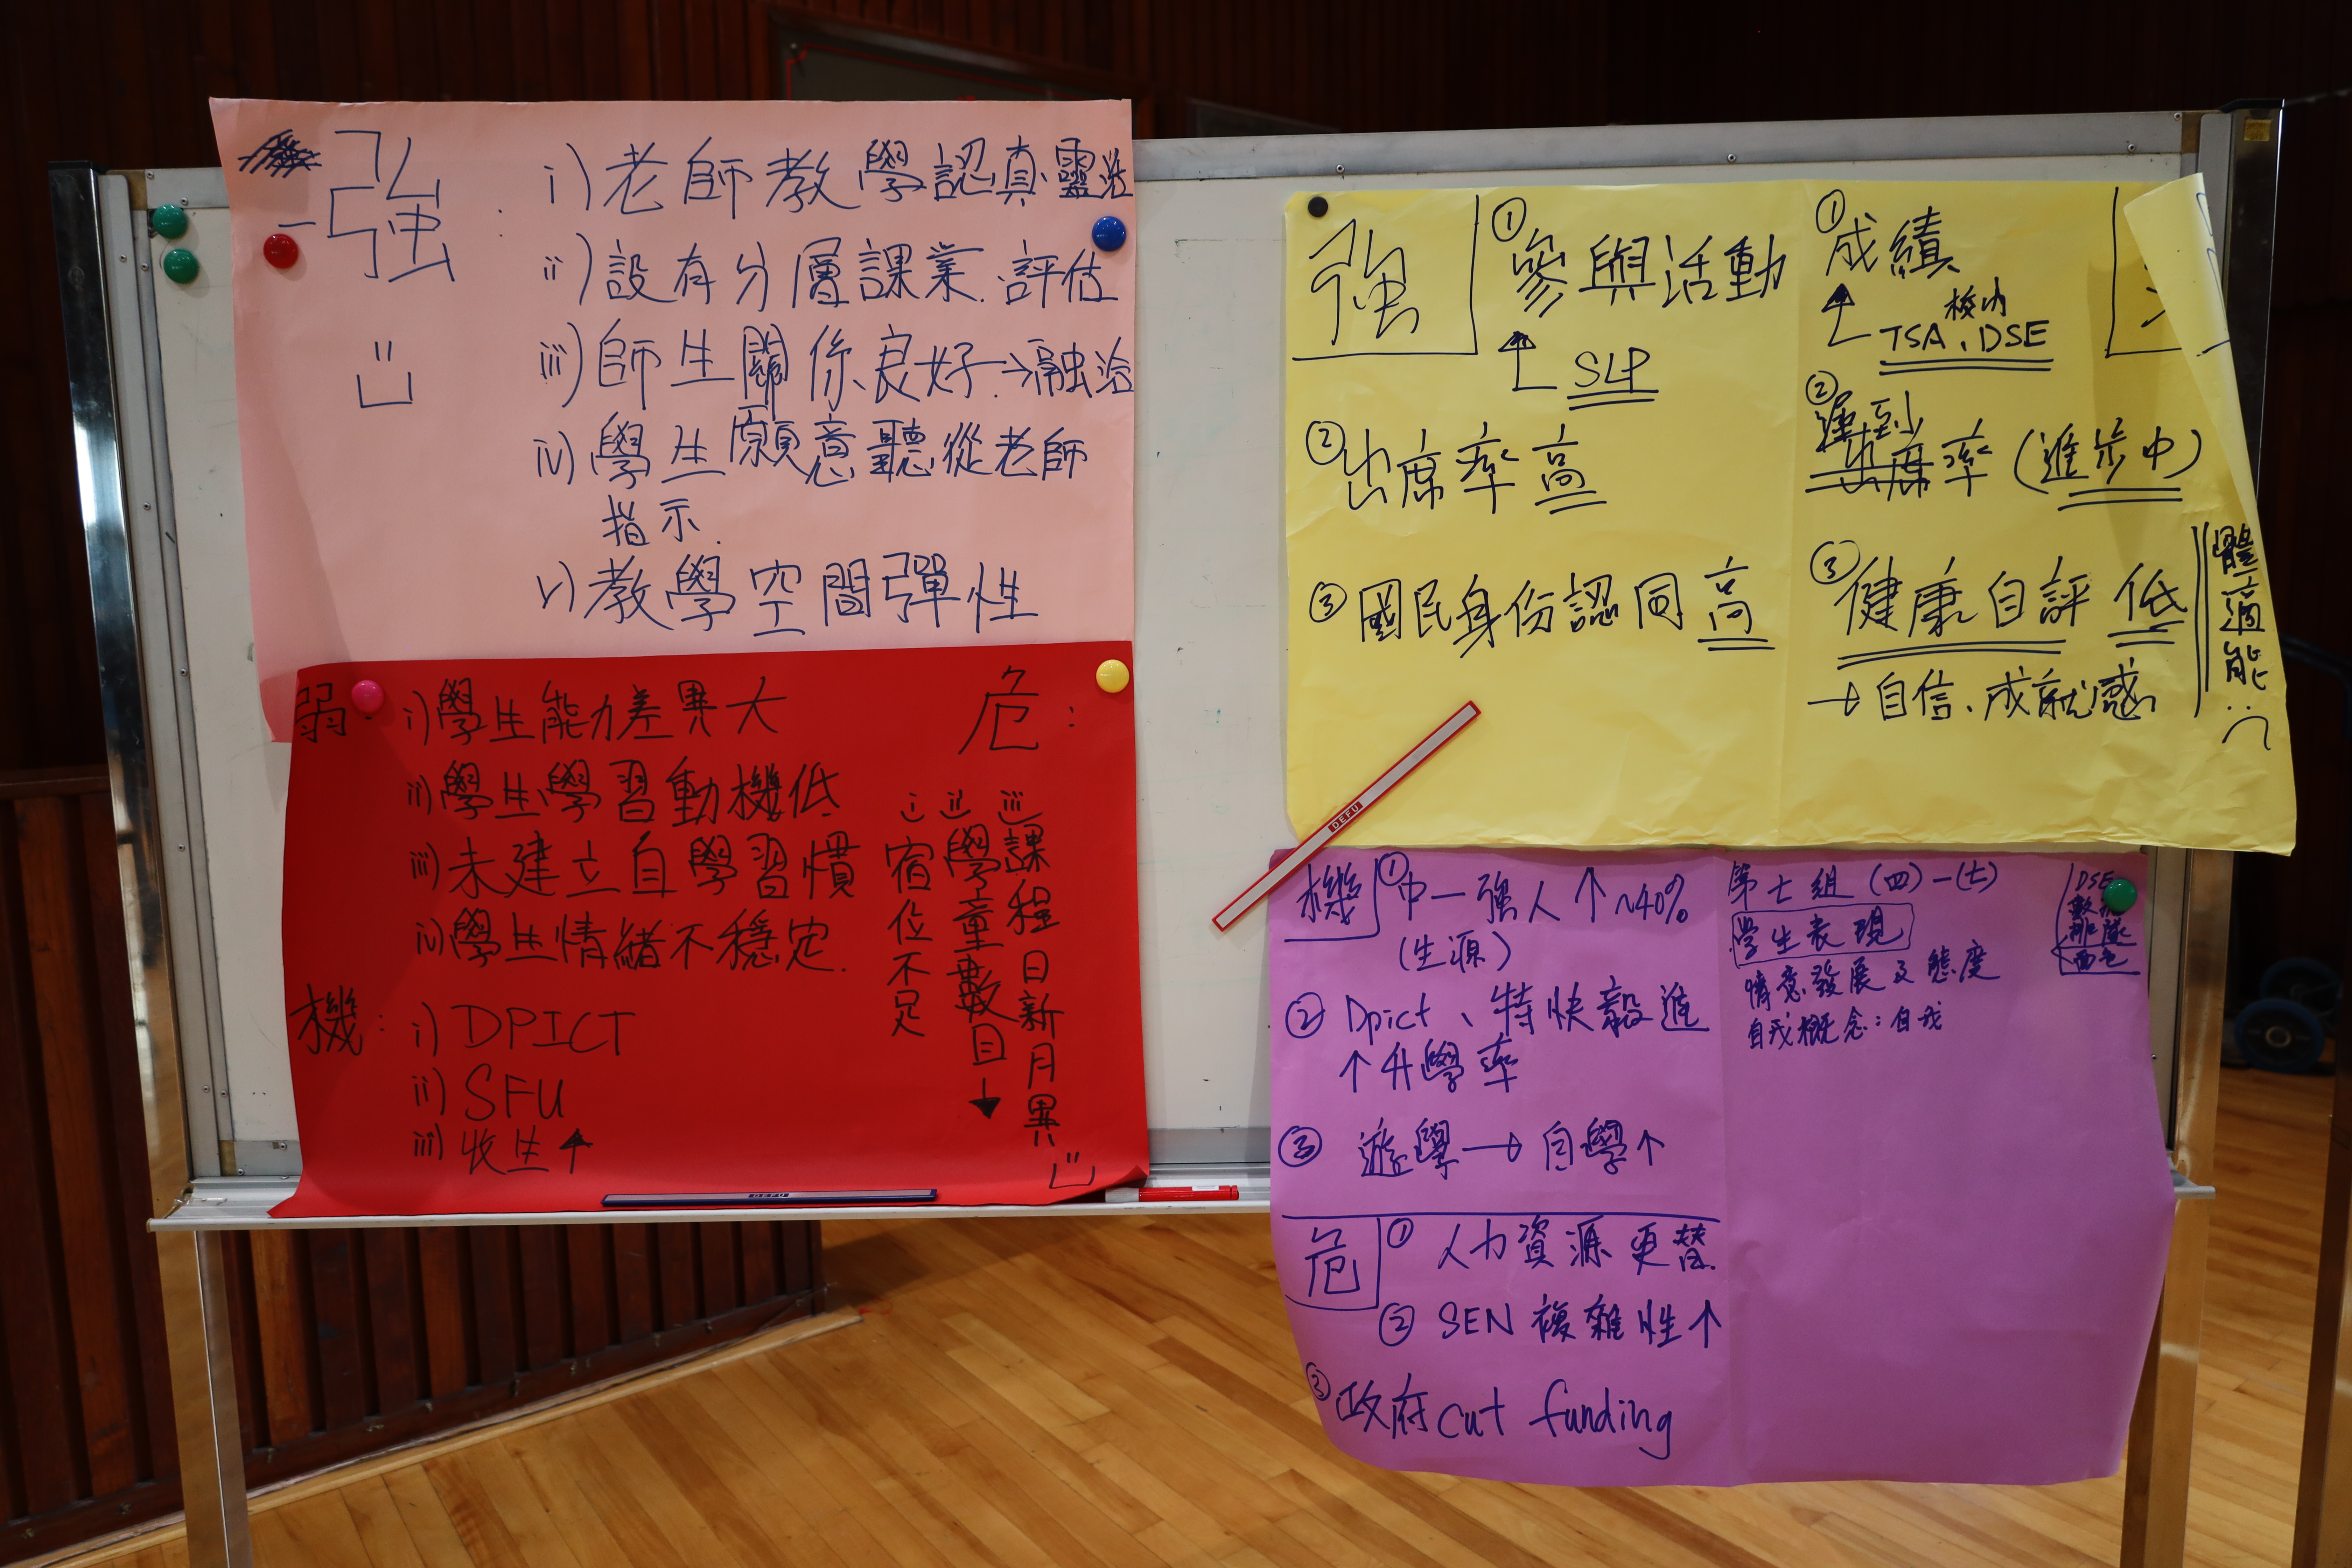 強 :
i) 老師教學認真.靈活
ii) 設有分層課業.評估
iii) 師生關係良好→融洽
iv) 學生願意聽從老師
指示.
v) 教學空間彈性
弱 :
i) 學生能力差異大
ii) 學生學習動機低
iii) 未建立自學習慣
iv) 學生情緒不穩定.
機 :
i) DPICT
ii) SFU
iii) 收生↑
危 :
i 宿位不足
ii 學童數目↓
iii 課程日新月異
DEFU
強
① 參與活動
↑ SLP
② 出席率高
③ 國民身份認同高
① 成績
↑ 校內
TSA、DSE
② 遲到
率 (進步中)
③ 健康自評 低
→ 自信、成就感
體適能 :(
DEFU
機
① 中一強人↑ ~40%
(生源)
② Dpict、特快毅進
↑升學率
③ 遊學→自學↑
危
① 人力資源更替
② SEN 複雜性↑
③ 政府 cut funding
第七組 (四)-(七)
学生表現
情意發展及態度
自我概念：自我
DSE